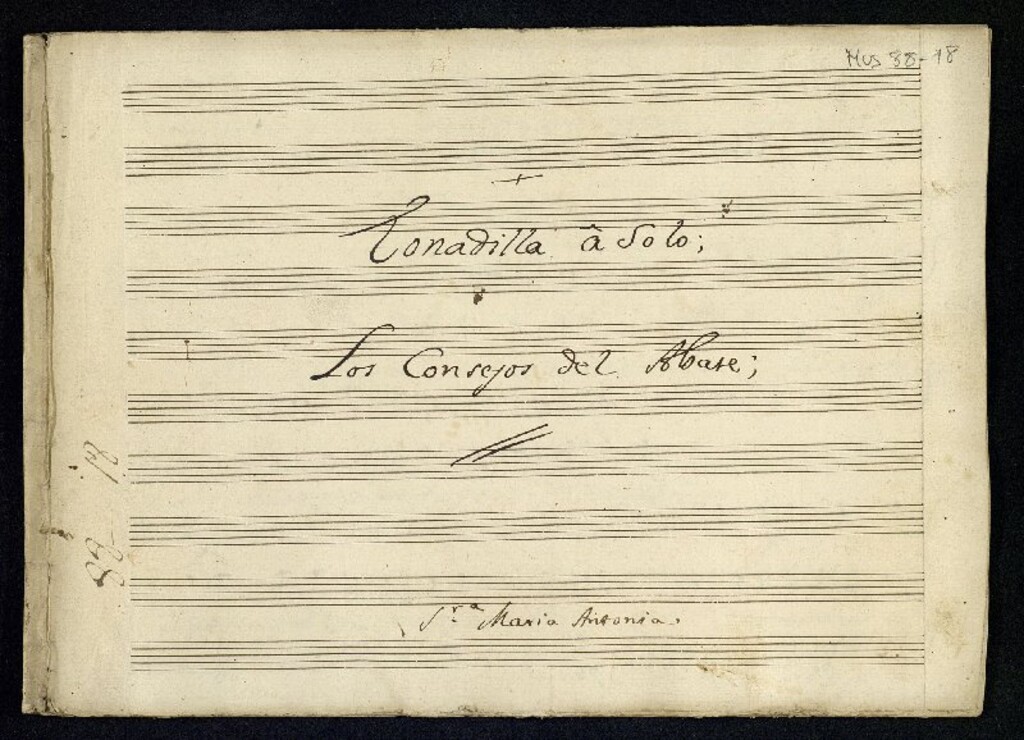 Mus 88-18
Tonadilla â Solo;
Los Consejos del Abate;
S.ra Maria Antonia.